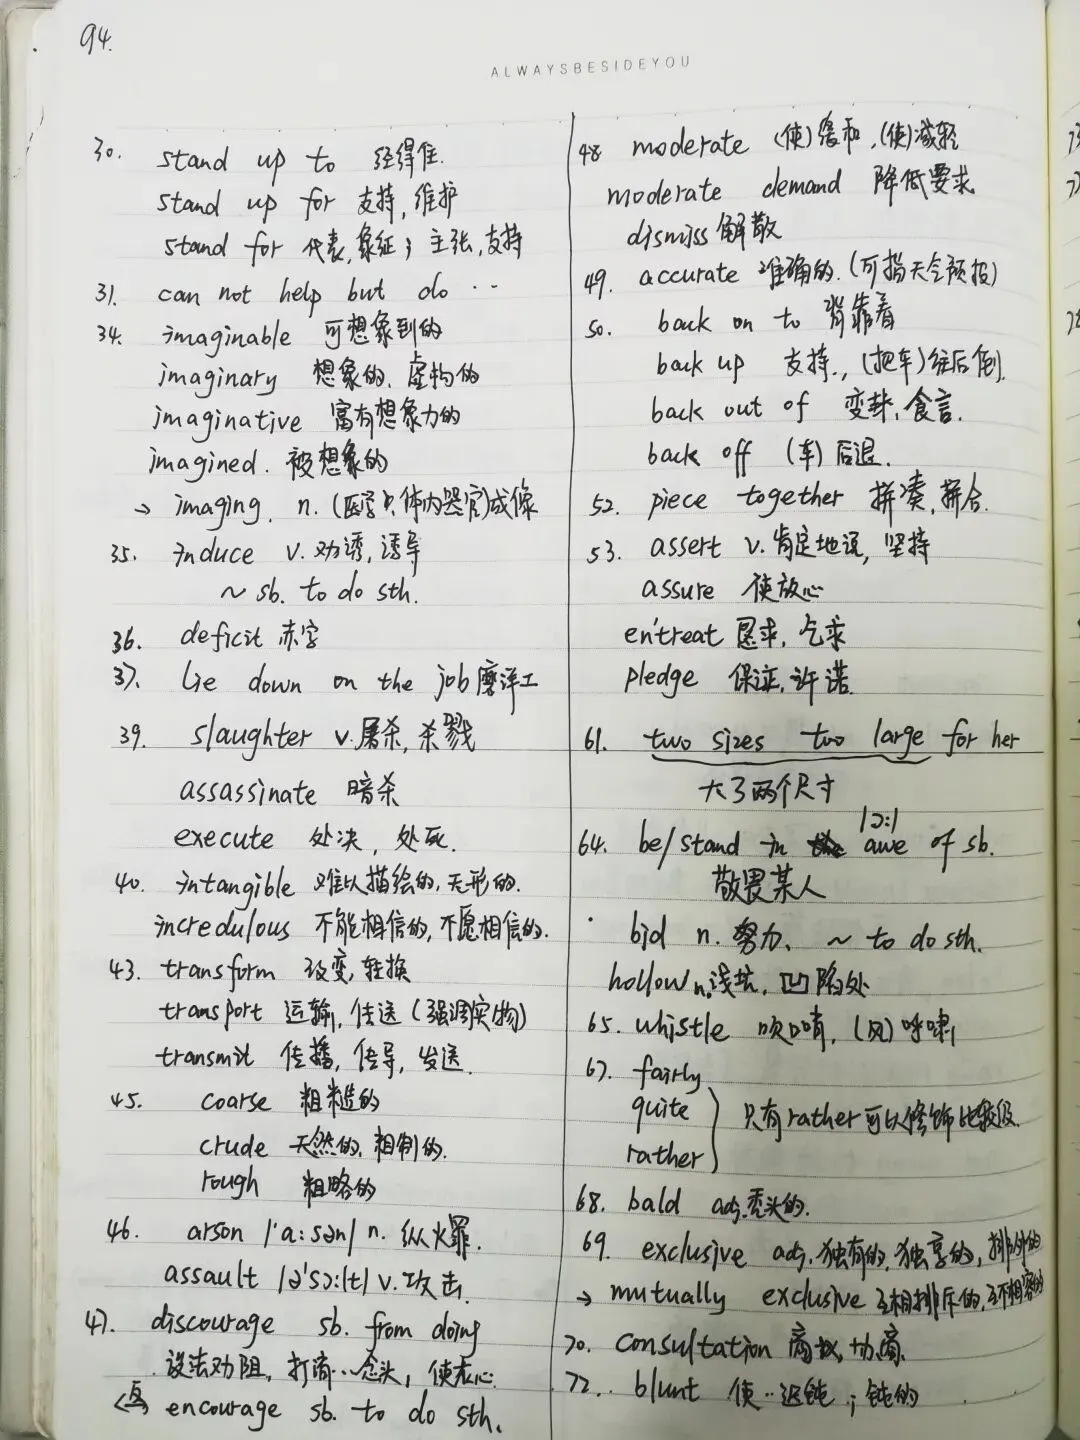 94.
ALWAYSBESIDEYOU
30. stand up to 经得住.
stand up for 支持, 维护
stand for 代表, 象征; 主张, 支持
31. can not help but do ··
34. imaginable 可想象到的
imaginary 想象的, 虚构的
imaginative 富有想象力的
imagined. 被想象的
→ imaging. n. (医学只体内器官)成像
35. induce v. 劝诱, 诱导
~ sb. to do sth.
36. deficit 赤字
37. lie down on the job 磨洋工
39. slaughter v. 屠杀, 杀戮
assassinate 暗杀
execute 处决, 处死.
40. intangible 难以描绘的, 无形的.
incredulous 不能相信的, 不愿相信的.
43. transform 改变, 转换
transport 运输, 传送 (强调实物)
transmit 传播, 传导, 发送.
45. coarse 粗糙的
crude 天然的, 粗制的.
rough 粗略的
46. arson /'a:sən/ n. 纵火罪.
assault /ə'sɔ:lt/ v. 攻击.
47. discourage sb. from doing
设法劝阻, 打消···念头, 使灰心.
<反> encourage sb. to do sth.
48 moderate (使)缓和, (使)减轻
moderate demand 降低要求
dismiss 解散
49. accurate 准确的. (可指天气预报)
50. back on to 背靠着
back up 支持., (把车)往后倒.
back out of 变卦, 食言.
back off (车) 后退.
52. piece together 拼凑, 拼合.
53. assert v. 肯定地说, 坚持
assure 使放心
en'treat 恳求, 乞求
pledge 保证, 许诺.
61. two sizes too large for her
大了两个尺寸
/ɔ:/
64. be/stand in awe of sb.
敬畏某人
· bid n. 努力、 ~ to do sth.
hollow n. 浅坑, 凹陷处
65. whistle 吹口哨, (风)呼啸
67. fairly
quite
rather
只有rather可以修饰比较级.
68. bald adj. 秃头的.
69. exclusive adj. 独有的, 独享的, 排外的
→ mutually exclusive 互相排斥的, 互不相容的
70. consultation 商议, 协商.
72.. blunt 使··迟钝; 钝的